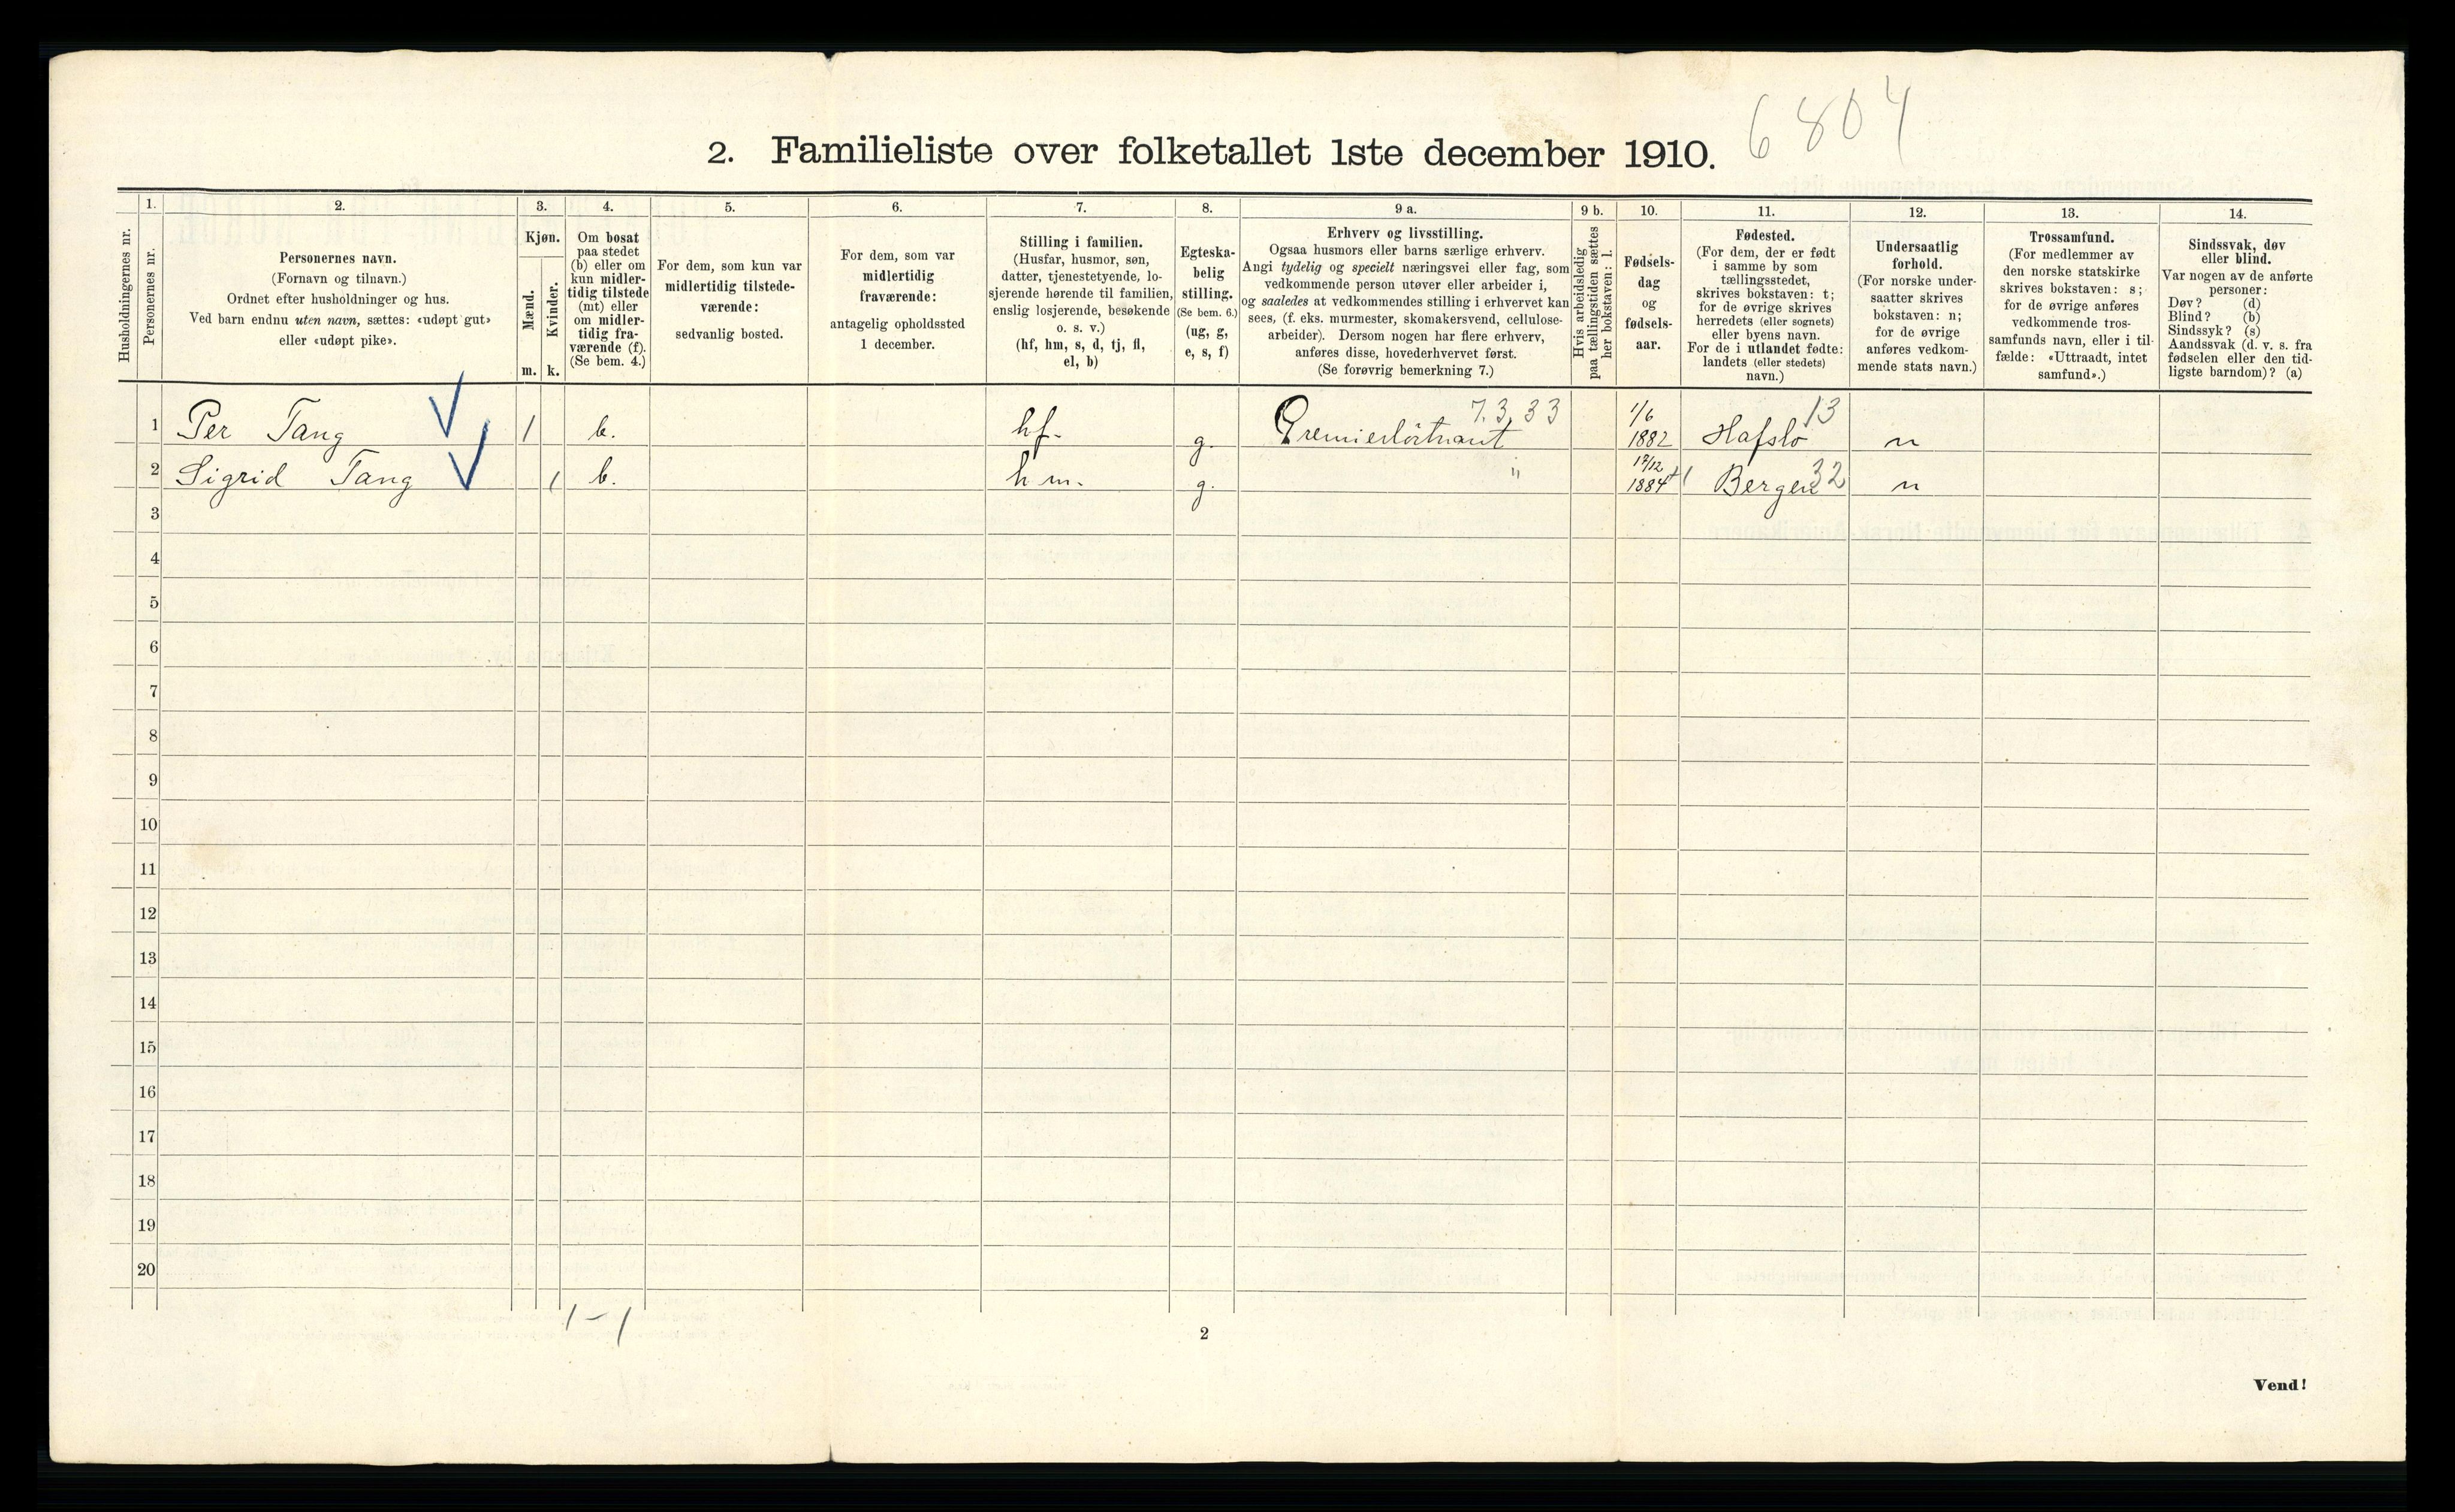 6804
2. Familieliste over folketallet 1ste december 1910.
1. 2. 3. 4. 5. 6. 7. 8. 9 a. 9 b. 10. 11. 12. 13. 14.
Husholdningernes nr.
Personernes nr.
Personernes navn.
(Fornavn og tilnavn.)
Ordnet efter husholdninger og hus.
Ved barn endnu uten navn, sættes: «udøpt gut»
eller «udøpt pike».
Kjøn.
Mænd.
Kvinder.
m. k.
Om bosat
paa stedet
(b) eller om
kun midler-
tidig tilstede
(mt) eller
om midler-
tidig fra-
værende (f).
(Se bem. 4.)
For dem, som kun var
midlertidig tilstede-
værende:
sedvanlig bosted.
For dem, som var
midlertidig
fraværende:
antagelig opholdssted
1 december.
Stilling i familien.
(Husfar, husmor, søn,
datter, tjenestetyende, lo-
sjerende hørende til familien,
enslig losjerende, besøkende
o. s. v.)
(hf, hm, s, d, tj, fl,
el, b)
Egteska-
belig
stilling.
(Se bem. 6.)
(ug, g,
e, s, f)
Erhverv og livsstilling.
Ogsaa husmors eller barns særlige erhverv.
Angi tydelig og specielt næringsvei eller fag, som
vedkommende person utøver eller arbeider i,
og saaledes at vedkommendes stilling i erhvervet kan
sees, (f. eks. murmester, skomakersvend, cellulose-
arbeider). Dersom nogen har flere erhverv,
anføres disse, hovederhvervet først.
(Se forøvrig bemerkning 7.)
Hvis arbeidsledig
paa tællingstiden sættes
her bokstaven: l.
Fødsels-
dag
og
fødsels-
aar.
Fødested.
(For dem, der er født
i samme by som
tællingsstedet,
skrives bokstaven: t;
for de øvrige skrives
herredets (eller sognets)
eller byens navn.
For de i utlandet fødte:
landets (eller stedets)
navn.)
Undersaatlig
forhold.
(For norske under-
saatter skrives
bokstaven: n;
for de øvrige
anføres vedkom-
mende stats navn.)
Trossamfund.
(For medlemmer av
den norske statskirke
skrives bokstaven: s;
for de øvrige anføres
vedkommende tros-
samfunds navn, eller i til-
fælde: «Uttraadt, intet
samfund».)
Sindssvak, døv
eller blind.
Var nogen av de anførte
personer:
Døv? (d)
Blind? (b)
Sindssyk? (s)
Aandssvak (d. v. s. fra
fødselen eller den tid-
ligste barndom)? (a)
7.3.33 1/6 13
1 Per Tang 1 b. hf. g. Premierløitnant 1882 Hafslo n
17/12 32
2 Sigrid Tang 1 b. hm. g. " 1884 Bergen n
3
4
5
6
7
8
9
10
11
12
13
14
15
16
17
18
19
20
1-1
2
Vend!